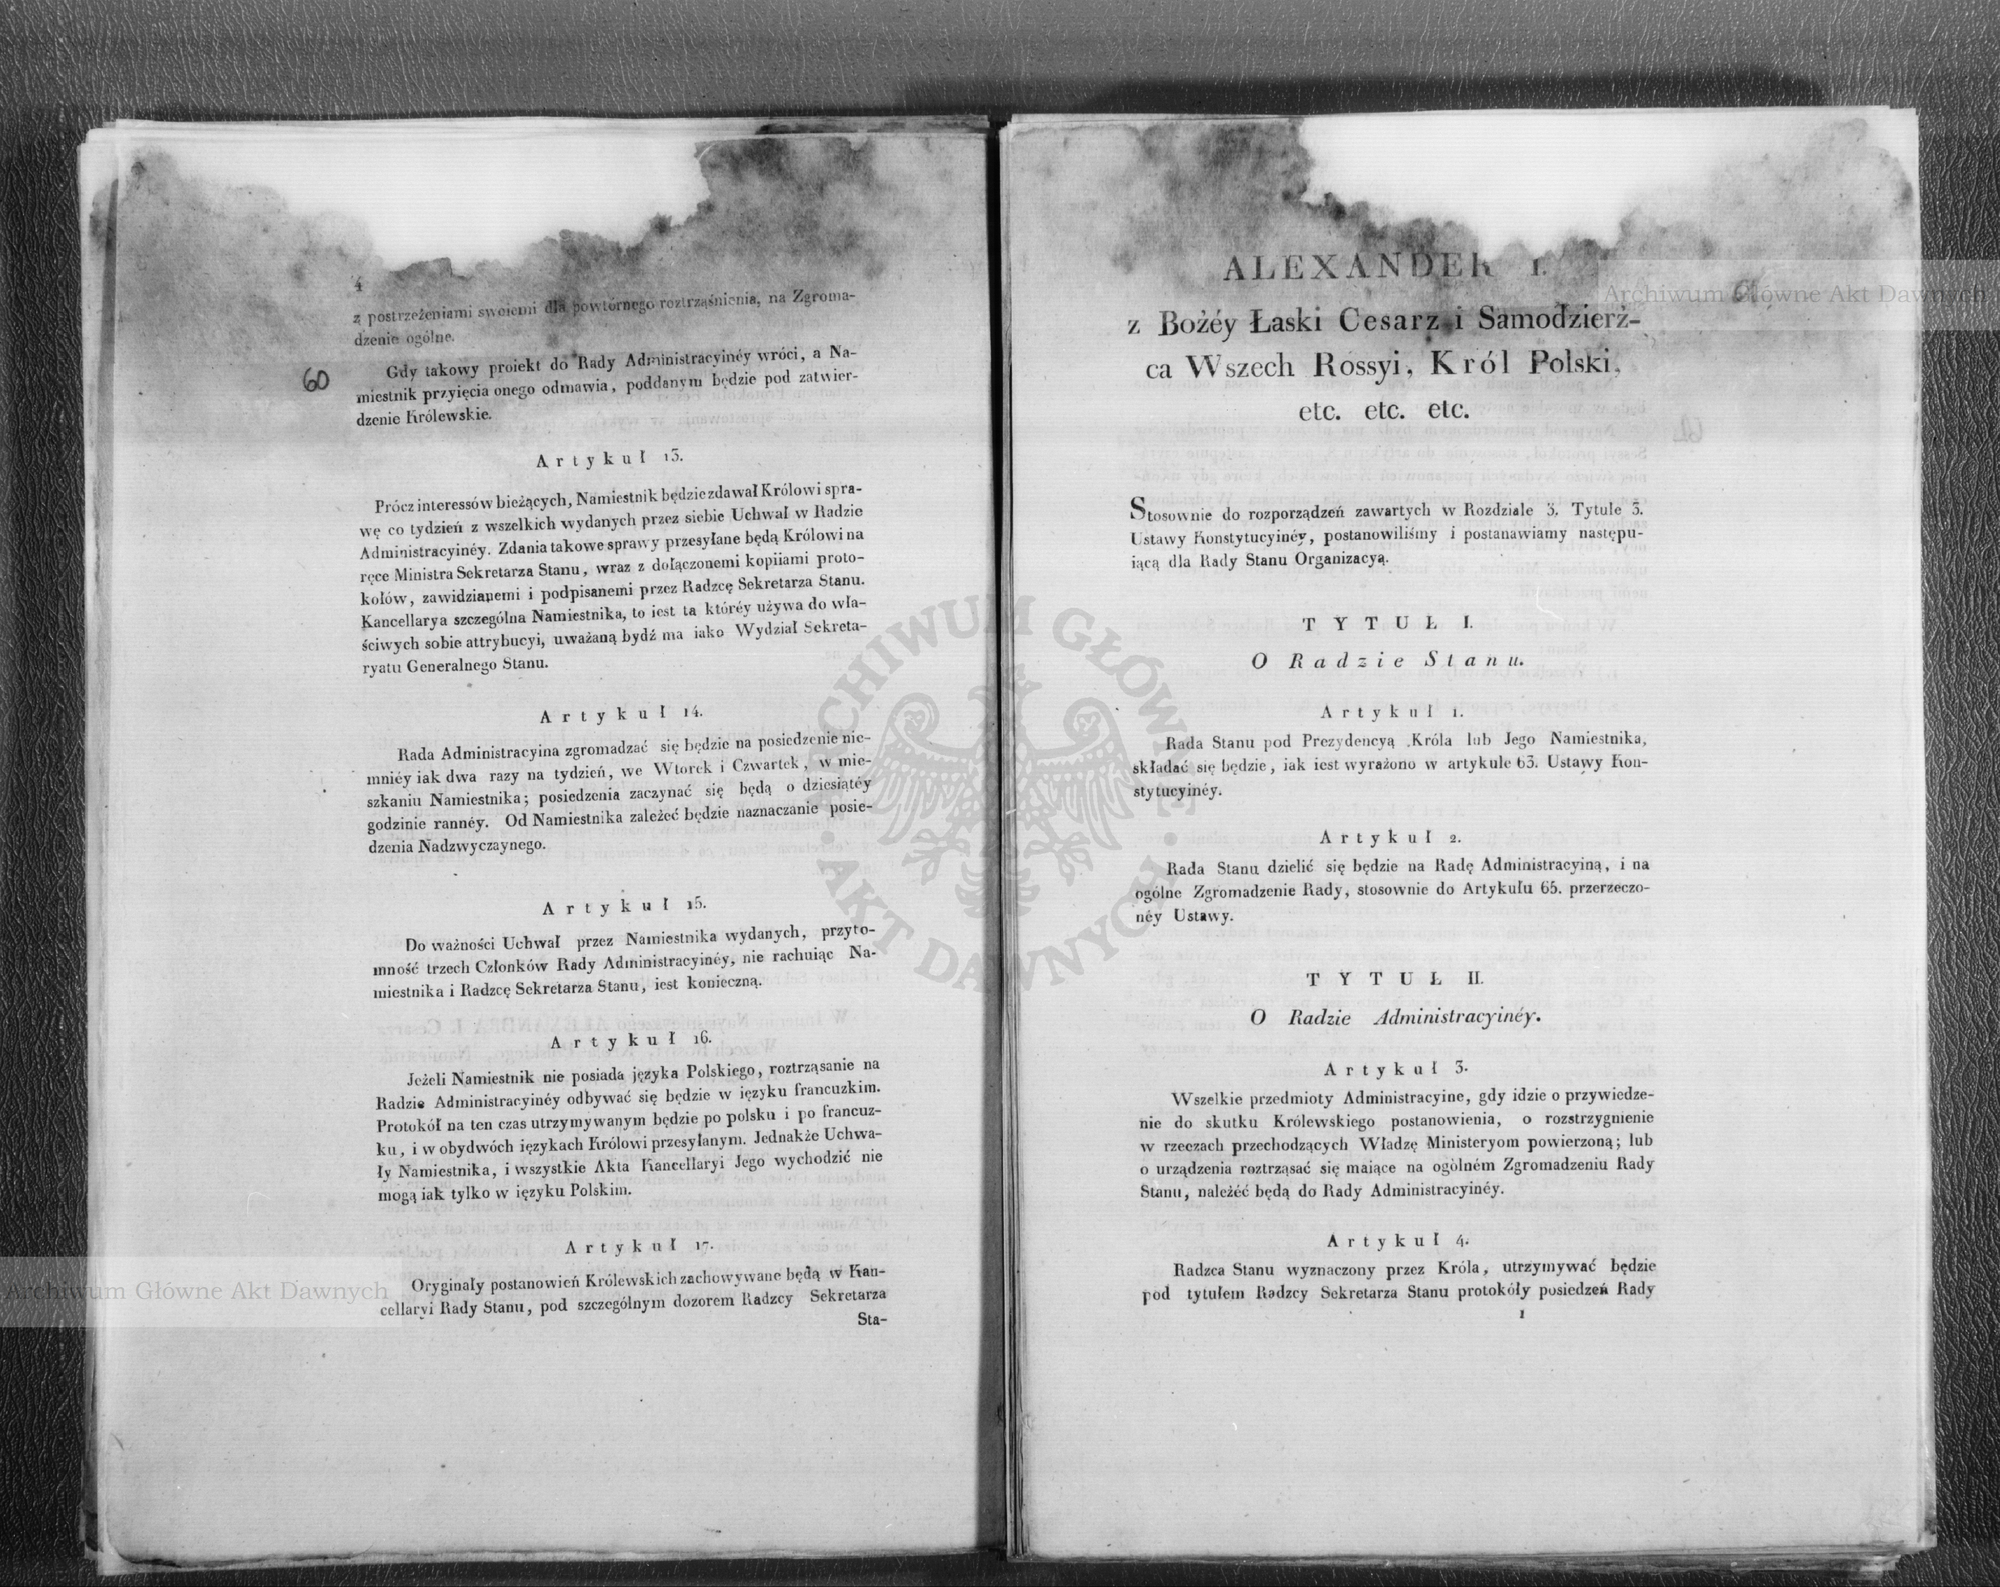 4
z postrzeżeniami swoiemi dla powtórnego roztrząśnienia, na Zgroma-
dzenie ogólne.
60
Gdy takowy proiekt do Rady Administracyinéy wróci, a Na-
miestnik przyięcia onego odmawia, poddanym będzie pod zatwier-
dzenie Królewskie.
Artykuł 13.
Prócz interessów bieżących, Namiestnik będzie zdawał Królowi spra-
wę co tydzień z wszelkich wydanych przez siebie Uchwał w Radzie
Administracyinéy. Zdania takowe sprawy przesyłane będą Królowi na
ręce Ministra Sekretarza Stanu, wraz z dołączonemi kopiiami proto-
kołów, zawidzianemi i podpisanemi przez Radzcę Sekretarza Stanu.
Kancellarya szczególna Namiestnika, to iest ta któréy używa do wła-
ściwych sobie attrybucyi, uważaną bydź ma iako Wydział Sekreta-
ryatu Generalnego Stanu.
Artykuł 14.
Rada Administracyina zgromadzać się będzie na posiedzenie nie-
mniéy iak dwa razy na tydzień, we Wtorek i Czwartek, w mie-
szkaniu Namiestnika; posiedzenia zaczynać się będą o dziesiątéy
godzinie rannéy. Od Namiestnika zależeć będzie naznaczanie posie-
dzenia Nadzwyczaynego.
Artykuł 15.
Do ważności Uchwał przez Namiestnika wydanych, przyto-
mność trzech Członków Rady Administracyinéy, nie rachuiąc Na-
miestnika i Radzcę Sekretarza Stanu, iest konieczną.
Artykuł 16.
Jeżeli Namiestnik nie posiada języka Polskiego, roztrząsanie na
Radzie Administracyinéy odbywać się będzie w ięzyku francuzkim.
Protokół na ten czas utrzymywanym będzie po polsku i po francuz-
ku, i w obydwóch ięzykach Królowi przesyłanym. Jednakże Uchwa-
ły Namiestnika, i wszystkie Akta Kancellaryi Jego wychodzić nie
mogą iak tylko w ięzyku Polskim.
Artykuł 17.
Oryginały postanowień Królewskich zachowywane będą w Kan-
cellaryi Rady Stanu, pod szczególnym dozorem Radzcy Sekretarza
Sta-
ALEXANDER I.
z Bożéy Łaski Cesarz i Samodzierż-
ca Wszech Rossyi, Król Polski,
etc. etc. etc.
Stosownie do rozporządzeń zawartych w Rozdziale 3. Tytule 3.
Ustawy Konstytucyinéy, postanowiliśmy i postanawiamy następu-
iącą dla Rady Stanu Organizacyą.
TYTUŁ I.
O Radzie Stanu.
Artykuł 1.
Rada Stanu pod Prezydencyą Króla lub Jego Namiestnika,
składać się będzie, iak iest wyrażono w artykule 63. Ustawy Kon-
stytucyinéy.
Artykuł 2.
Rada Stanu dzielić się będzie na Radę Administracyiną, i na
ogólne Zgromadzenie Rady, stosownie do Artykułu 65. przerzeczo-
néy Ustawy.
TYTUŁ II.
O Radzie Administracyinéy.
Artykuł 3.
Wszelkie przedmioty Administracyine, gdy idzie o przywiedze-
nie do skutku Królewskiego postanowienia, o rozstrzygnienie
w rzeczach przechodzących Władzę Ministeryom powierzoną; lub
o urządzenia roztrząsać się maiące na ogólném Zgromadzeniu Rady
Stanu, należéć będą do Rady Administracyinéy.
Artykuł 4.
Radzca Stanu wyznaczony przez Króla, utrzymywać będzie
pod tytułem Radzcy Sekretarza Stanu protokóły posiedzeń Rady
1
Archiwum Główne Akt Dawnych
Archiwum Główne Akt Dawnych
ARCHIWUM GŁÓWNE
AKT DAWNYCH